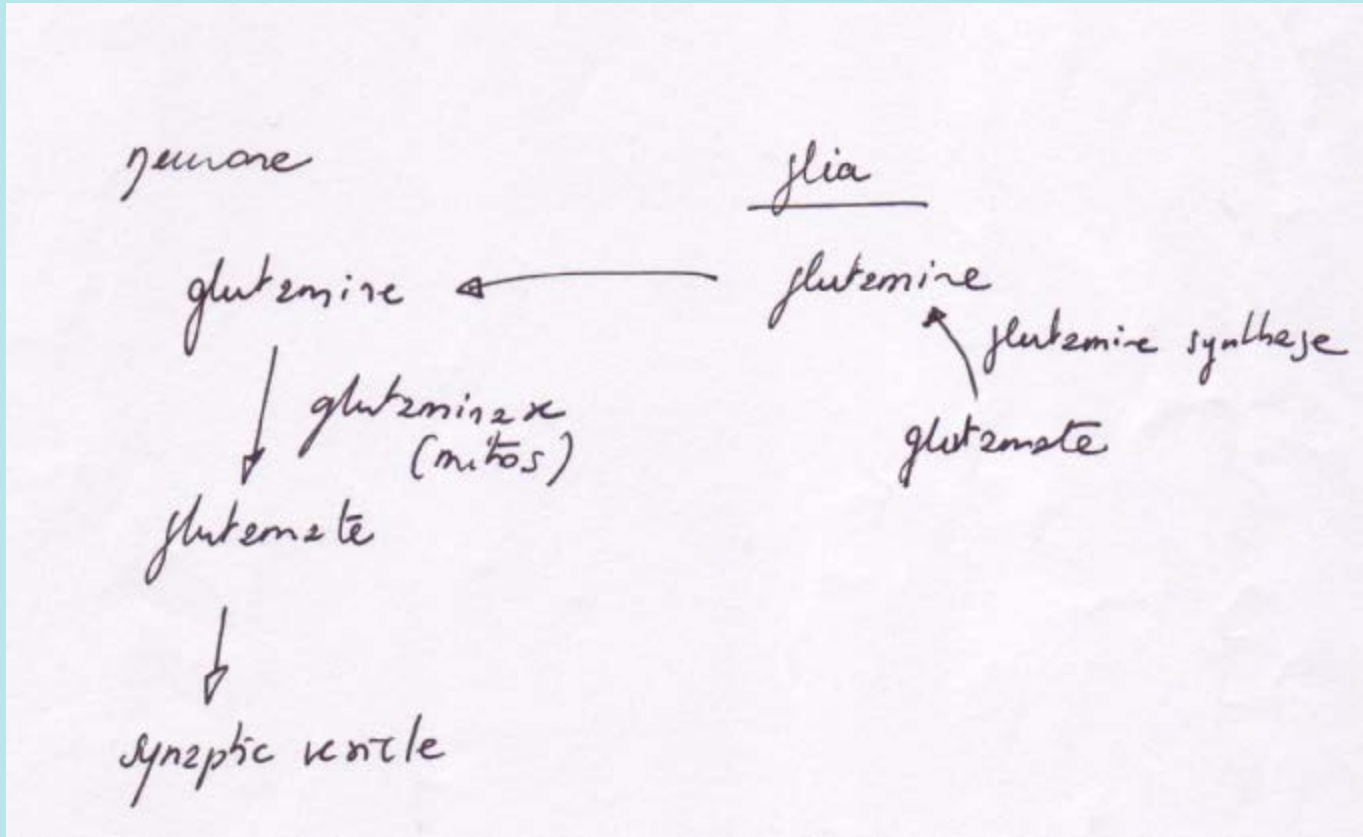 neurone
glia
glutamine
glutamine
glutamine synthase
glutaminase
(mitos)
glutamate
glutamate
synaptic vesicle